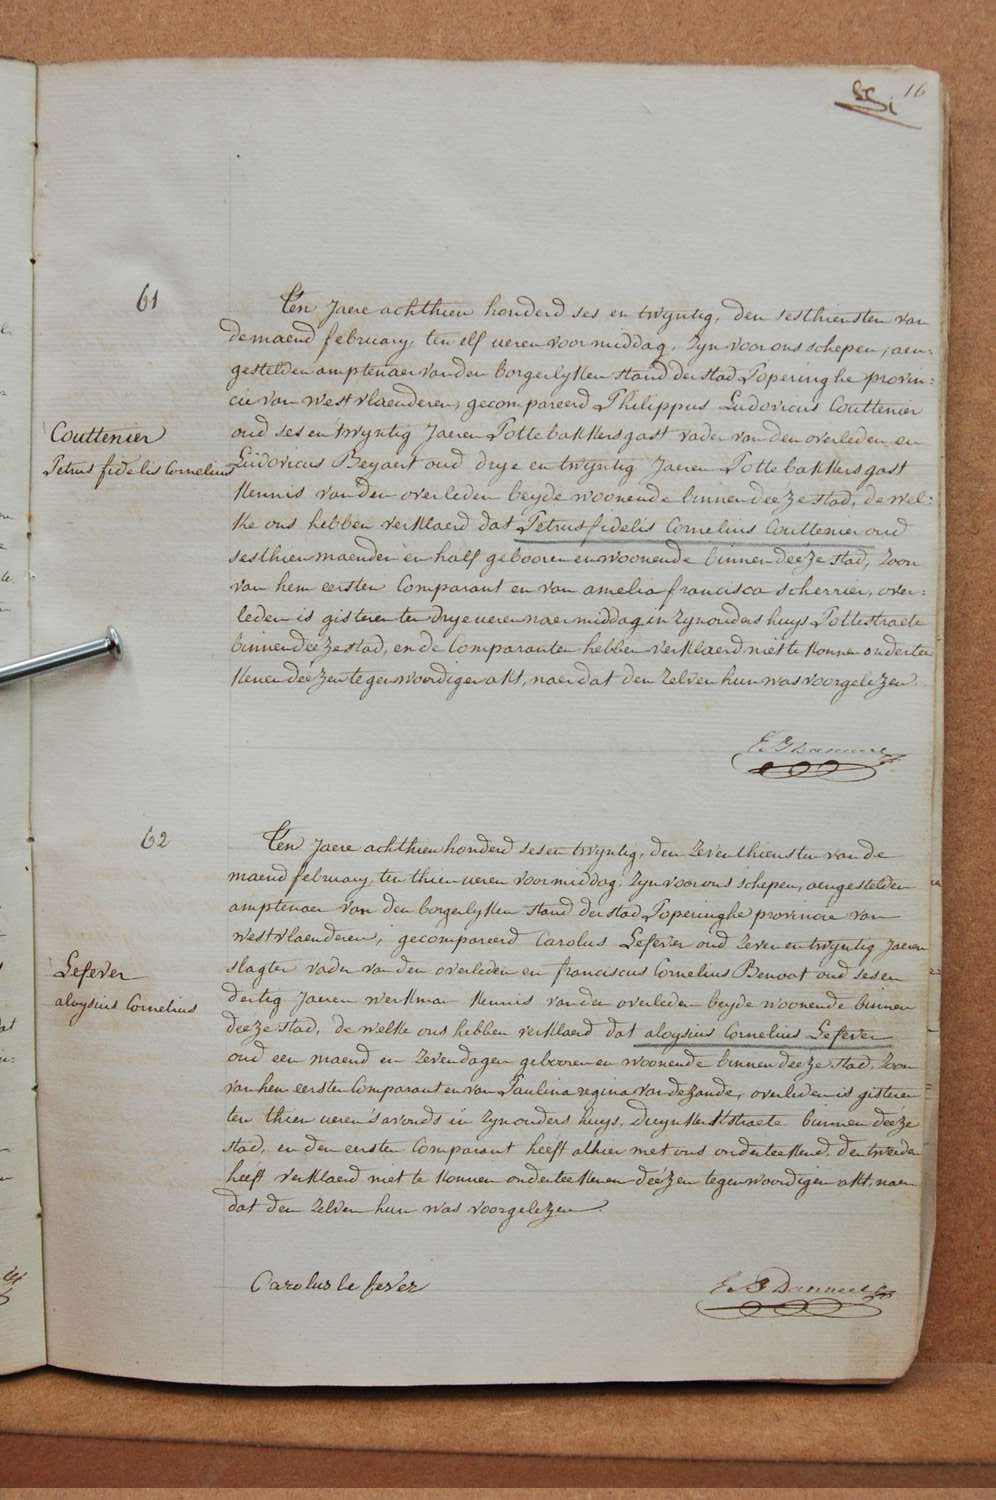 16
61
Ten Jaere achthien honderd ses en twyntig, den sesthiensten van
de maend february, ten elf ueren voormiddag, Zyn voor ons schepen, aen-
gestelden amptenaer van den borgerlyken stand der stad Poperinghe provin-
cie van westvlaenderen, gecompareerd Philippus Ludovicus Couttenier
Couttenier
Petrus fidelis Cornelius
oud ses en twyntig Jaeren Pottebakkersgast vader van den overleden, en
Ludovicus Beyaert oud drye en twyntig Jaeren Pottebakkersgast
kennis van den overleden beyde woonende binnen deéze stad, de wel-
ke ons hebben verklaerd dat Petrus fidelis Cornelius Couttenier oud
sesthien maenden en half gebooren en woonende binnen deéze stad, Zoon
van hem eersten Comparant en van amelia francisca scherrier, over-
leden is gisteren ten drye ueren naermiddag in Zyn ouders huys Pottestraete
binnen deéze stad, en de Comparanten hebben verklaerd niet te konnen ondertee
kenen deézen tegenwoordigen akt, naer dat den Zelven hun was voorgelezen.
62
Ten Jaere achthien honderd ses en twyntig, den Zeventhiensten van de
maend february, ten thien ueren voormiddag, Zyn voor ons schepen, aengestelden
amptenaer van den borgerlyken stand der stad Poperinghe provincie van
westvlaenderen, gecompareerd Carolus Lefever oud Zeven en twyntig Jaeren
Lefever
aloysius Cornelius
slagter vader van den overleden en franciscus Cornelius Benoot oud ses en
dertig Jaeren werkman kennis van den overleden beyde woonende binnen
deeze stad, de welke ons hebben verklaerd dat aloysius Cornelius Lefever
oud een maend en Zeven dagen gebooren en woonende binnen deéze stad, Zoon
van hem eersten Comparant en van Paulina regina vandezande, overleden is gisteren
ten thien ueren 's avonds in Zyn ouders huys, duynkerkstraete binnen deéze
stad, en den eersten Comparant heéft alhier met ons onderteekend, den tweeden
heéft verklaerd niet te konnen onderteekenen deézen tegenwoordigen akt, naer
dat den Zelven hun was voorgelezen
Carolus le fever